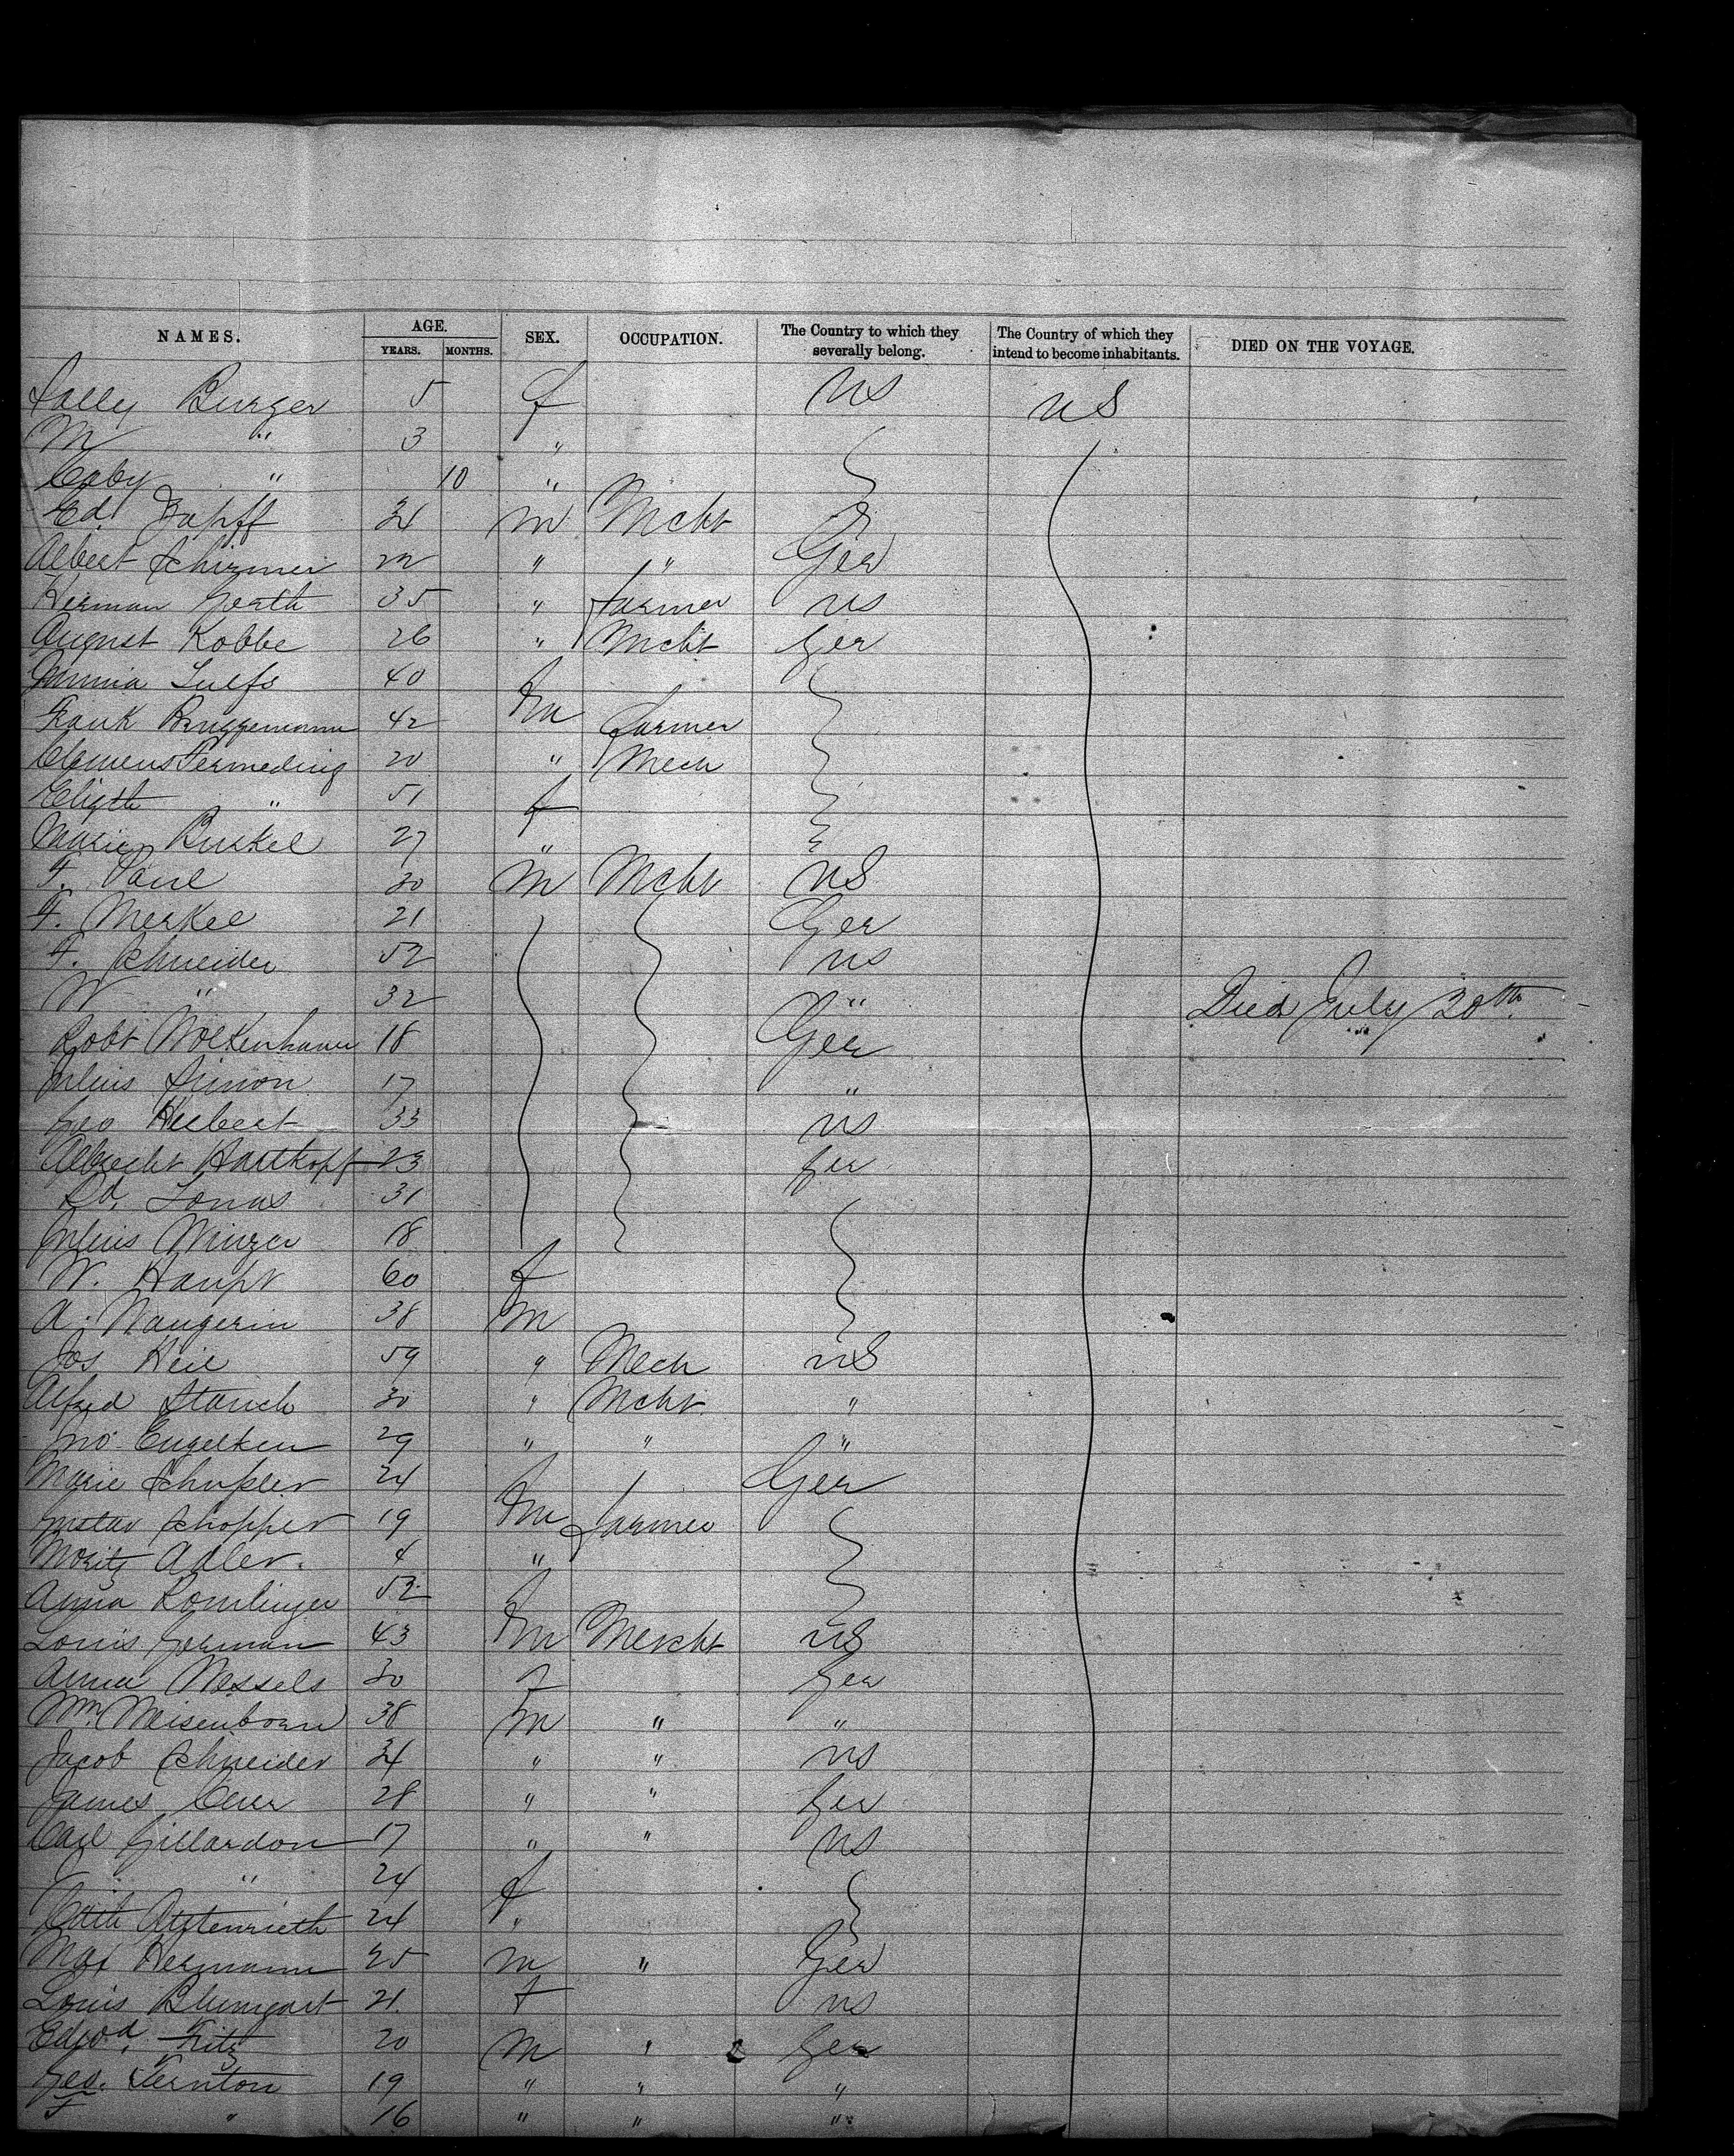 NAMES. AGE. YEARS. MONTHS. SEX. OCCUPATION. The Country to which they severally belong. The Country of which they intend to become inhabitants. DIED ON THE VOYAGE.
Sally Burger 5 f US US
M " 3 "
" 10 "
Ed. 34 m Mcht
Albert Schirmer 22 " " Ger
Herman Gerth 35 " farmer US
August Kobbe 26 " Mcht Ger
Lulfs 40 f
Frank Bruggemann 42 m farmer
Clemens Vermeding 20 " Mech
" 51 f
Marie Burkel 27 "
F. Paul 30 m Mcht US
F. Merkel 21 Ger
F. Schneider 52 US
W " 32 " Died July 20th
Robt Wolkenhauer 18 Ger
Julius Simon 17 "
Geo Herbert 33 US
Albrecht Hartkopf 23 Ger
31
Julius 18
W. Haupt 60 f
A. Naugerin 38 m
Jos Keil 59 " Mech US
Alfred Starich 30 " Mcht "
Jno. Engelken 29 " " "
Marie 24 f Ger
Gustav Schopper 19 m farmer
Moritz Adler 4 "
Anna 52 f
Louis German 43 m Mercht US
Anna Wessels 30 f Ger
Wm. Meisenborn 38 m " "
Jacob Schneider 34 " " US
James 28 " " Ger
Carl Gillardon 17 " " US
" 24 f
Autenrieth 24 "
Max Hermann 25 m " Ger
Louis Blumgart 21 f US
Edwd. Fritz 20 m " Ger
Geo. Vernton 19 " " "
F " 16 " " "